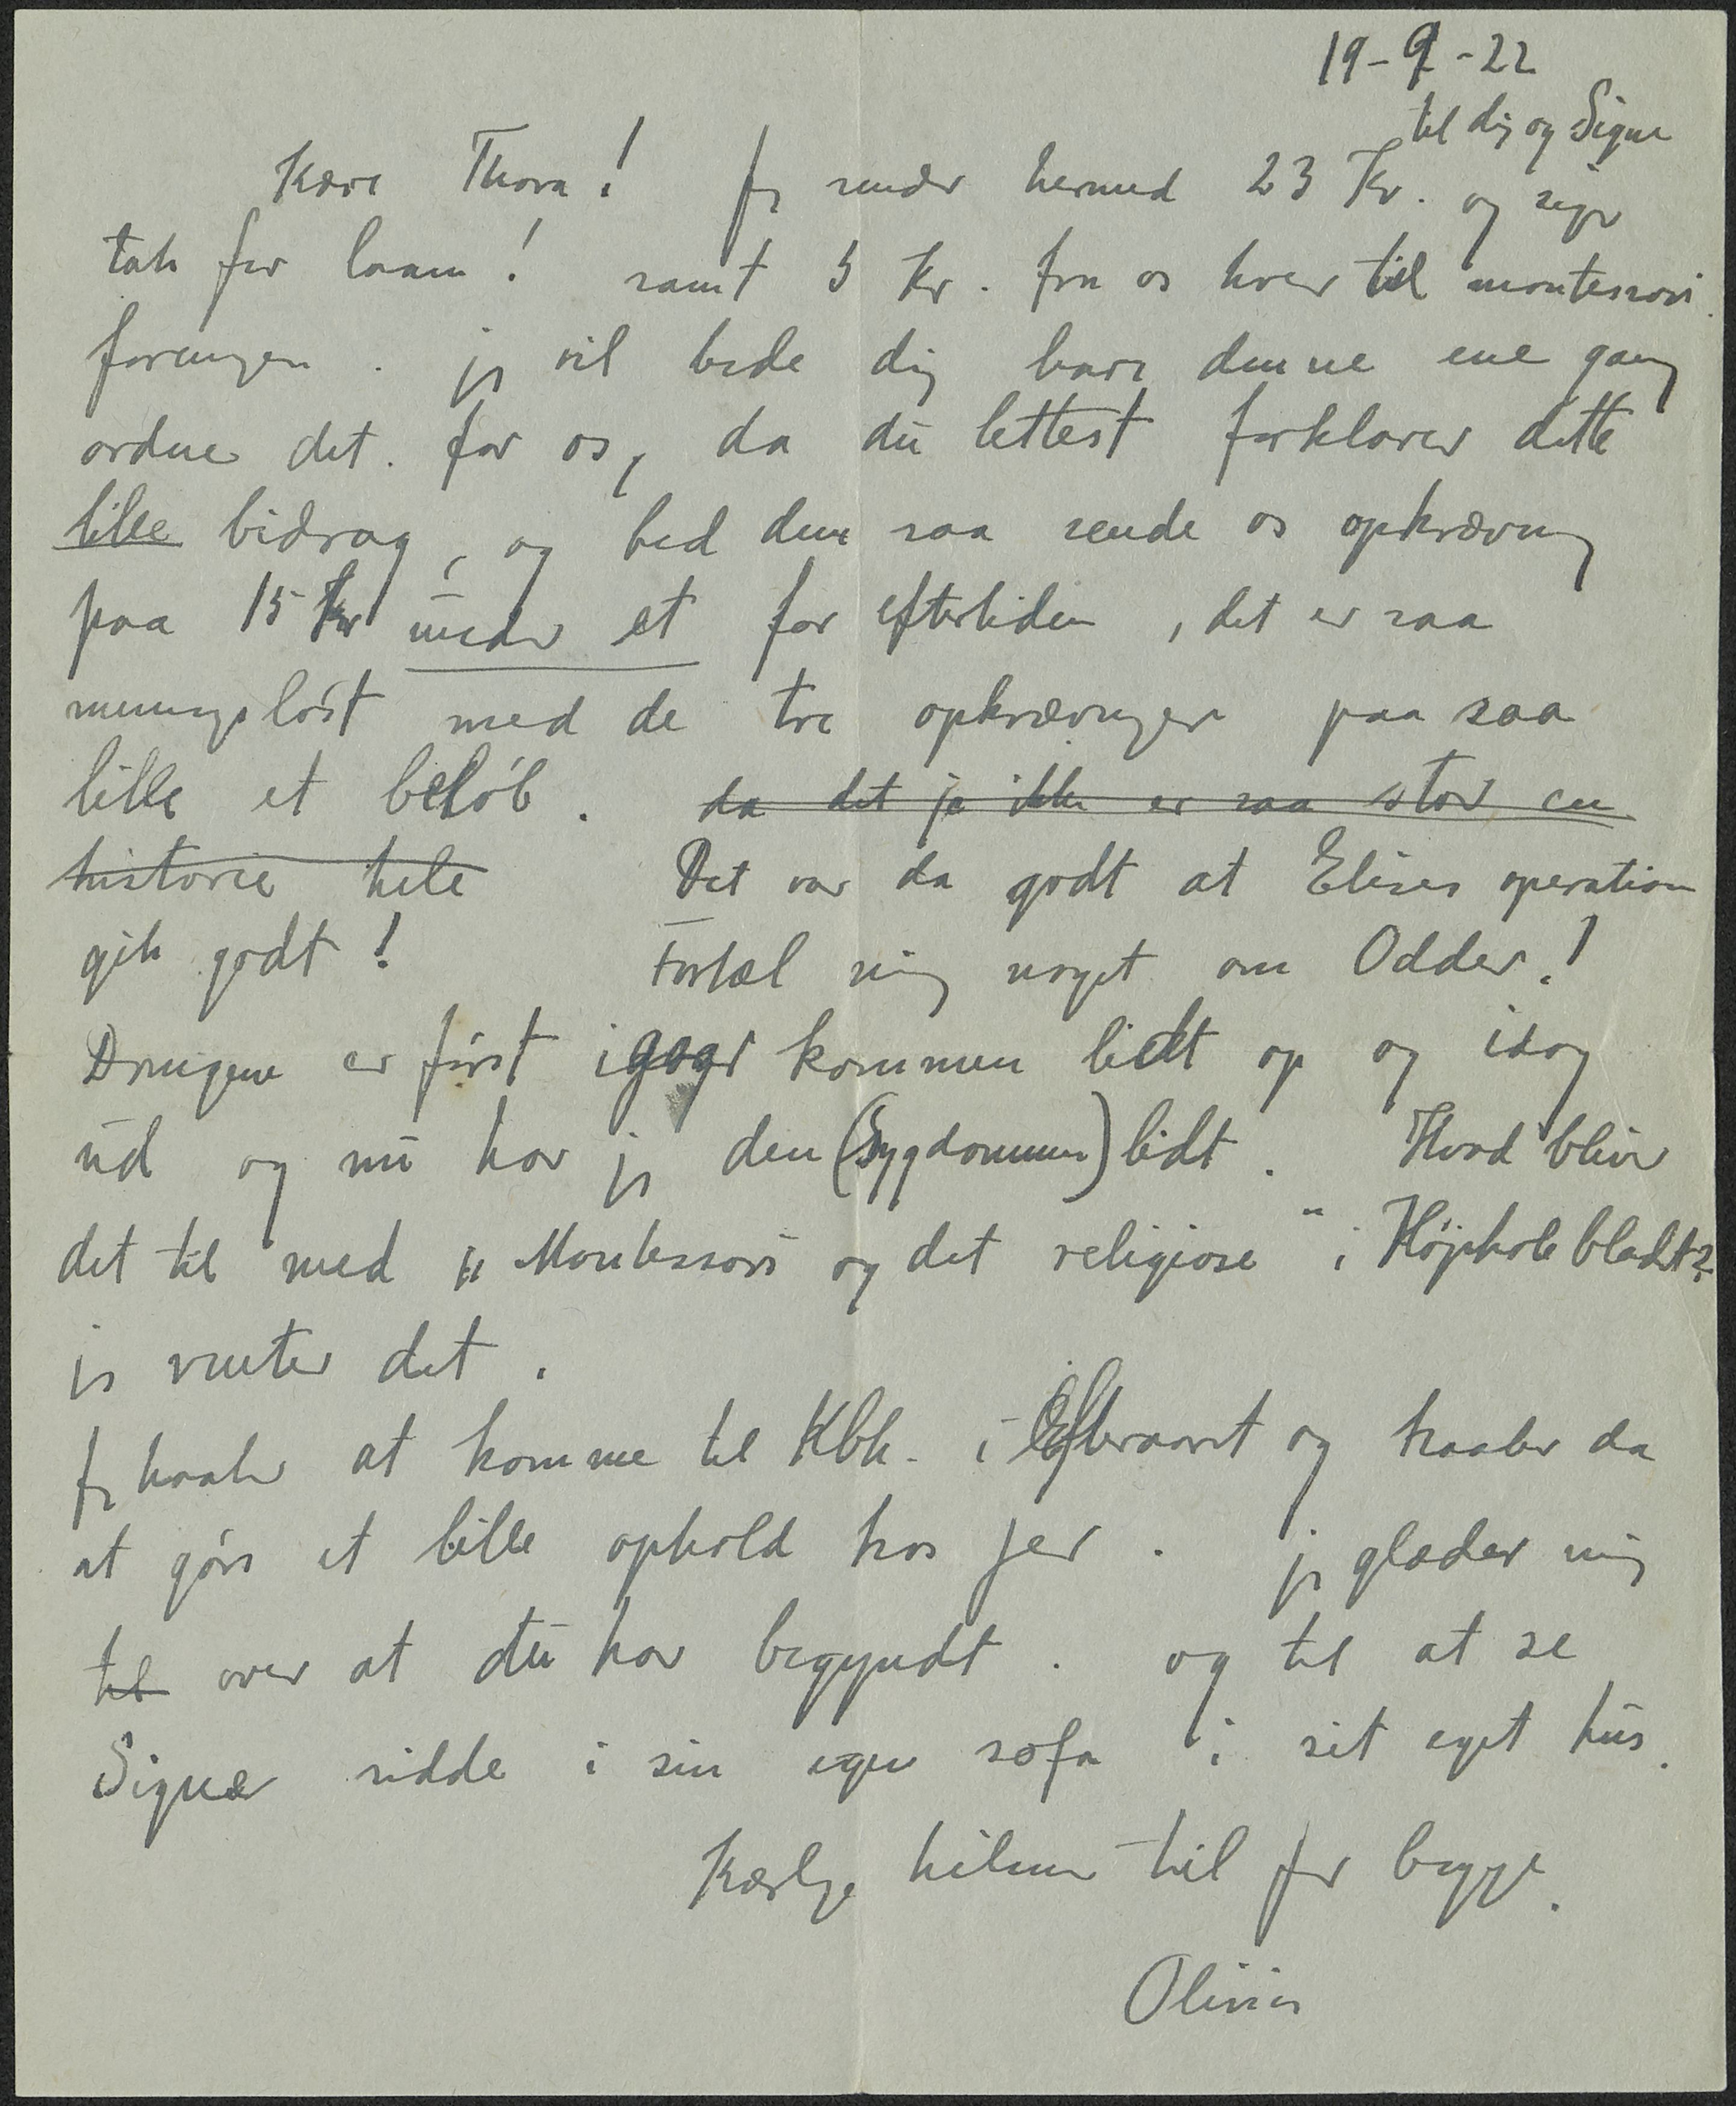 19-9-22
til dig og Signe
Kære Thora! Jeg sender hermed 23 Kr. og siger
tak for laan! samt 5 Kr. fra os hver til montessori
foreningen. jeg vil bede dig bare denne ene gang
ordne det for os, da du lettest forklarer dette
lille bidrag, og bed dem saa sende os opkrævning
paa 15 Kr under et for eftertiden, det er saa
meningsløst med de tre opkrævninger paa saa
lille et beløb. da det jo ikke er saa stor en
historie hele Det var da godt at Elises operation
gik godt! Fortæl mig noget om Odder!
Drengene er først igaar kommen lidt op og idag
ud og nu har jeg den (Sygdommen) lidt. Hvad bliver
det til med „Montessori og det religiøse“ i Højskolebladet?
jeg venter det.
Jeg haaber at komme til Kbh. i Efteraaret og haaber da
at gøre et lille ophold hos jer. jeg glæder mig
til over at du har begyndt. og til at se
Signe sidde i sin egen sofa i sit eget hus.
Kærlige hilsner til jer begge.
Olivia